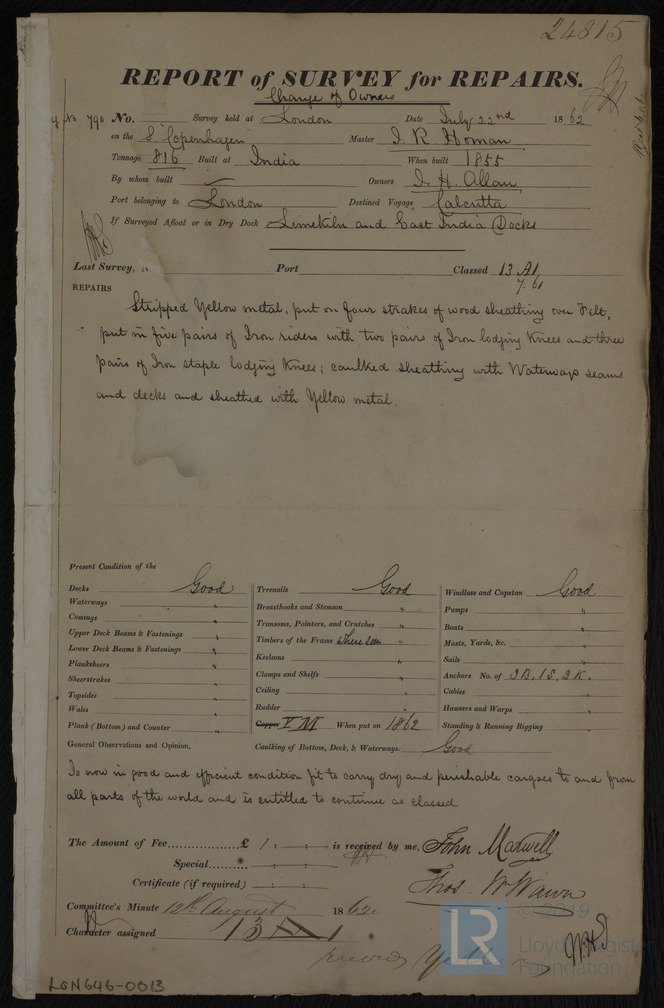 24815
REPORT of SURVEY for REPAIRS.
Change of Owners
No. 790 No. Survey held at London Date July 22nd 1862
on the S Copenhagen Master I. R Homan
Tonnage 816 Built at India When built 1855
By whom built Owners I. H. Allan
Port belonging to London Destined Voyage Calcutta
If Surveyed Afloat or in Dry Dock Limekiln and East India Docks
Last Survey, Port Classed 13 A1
7.61
REPAIRS
Stripped Yellow metal, put on four strakes of wood sheathing over Felt,
put in five pairs of Iron riders with two pairs of Iron lodging Knees and three
pairs of Iron staple lodging Knees; caulked sheathing with Waterways seams
and decks and sheathed with Yellow metal.
Present Condition of the
Decks Good Treenails Good Windlass and Capstan Good
Waterways " Breasthooks and Stemson " Pumps "
Comings " Transoms, Pointers, and Crutches " Boats "
Upper Deck Beams & Fastenings " Timbers of the Frame where seen " Masts, Yards, &c. "
Lower Deck Beams & Fastenings " Keelsons " Sails "
Planksheers " Clamps and Shelfs " Anchors No. of 3B, 1S, 2K.
Sheerstrakes " Ceiling " Cables "
Topsides " Rudder " Hawsers and Warps "
Wales " Copper Y M When put on 1862 Standing & Running Rigging "
Plank (Bottom) and Counter " Caulking of Bottom, Deck, & Waterways. Good
General Observations and Opinion,
Is now in good and efficient condition fit to carry dry and perishable cargoes to and from
all parts of the world and is entitled to continue as classed
The Amount of Fee £ 1 : : is received by me, John Maxwell
Special : :
Certificate (if required) : : Thos. W Wawn
Committee's Minute 12th August 1862
Character assigned 13 A 1
LR
© 2019
Lloyd's Register
Foundation
LON646-0013